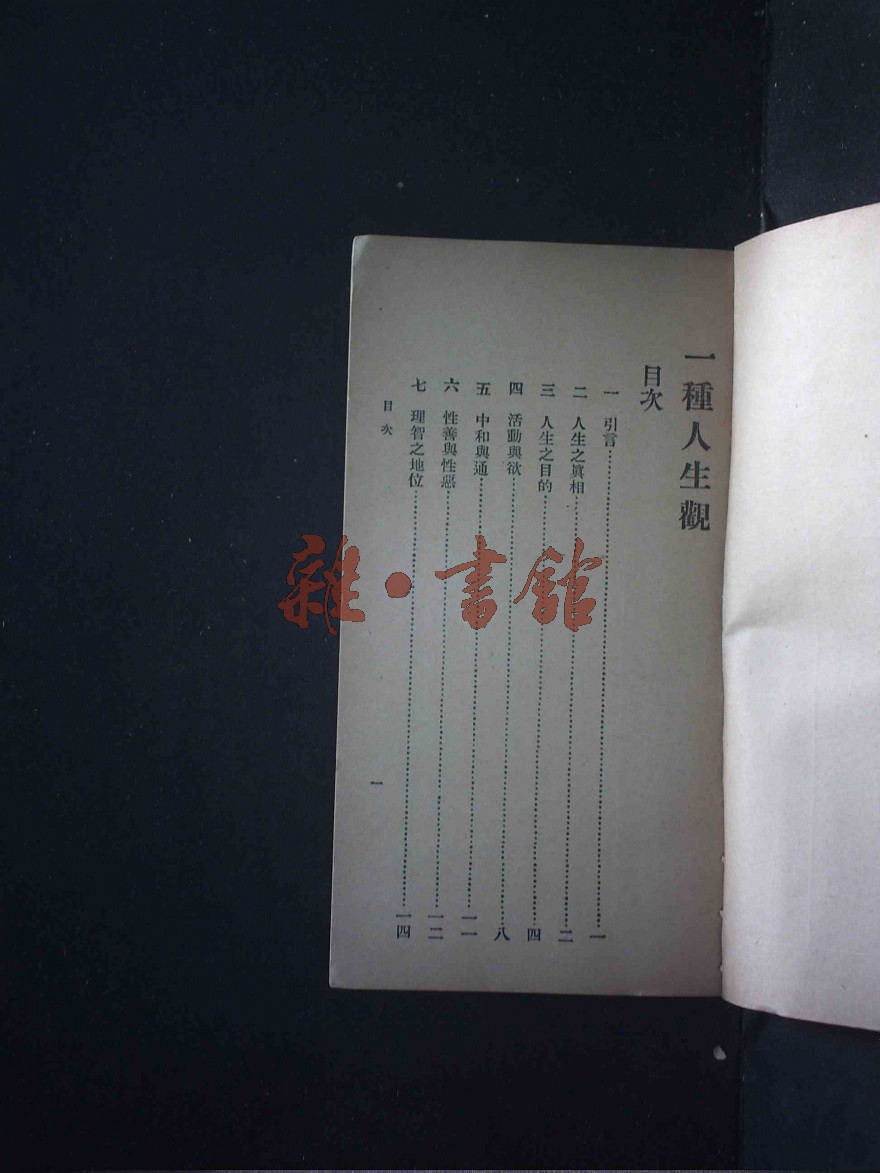 一種人生觀
目次
一 引言……一
二 人生之眞相……二
三 人生之目的……四
四 活動與欲……八
五 中和與通……一一
六 性善與性惡……一二
七 理智之地位……一四
目次
一
雜·書館